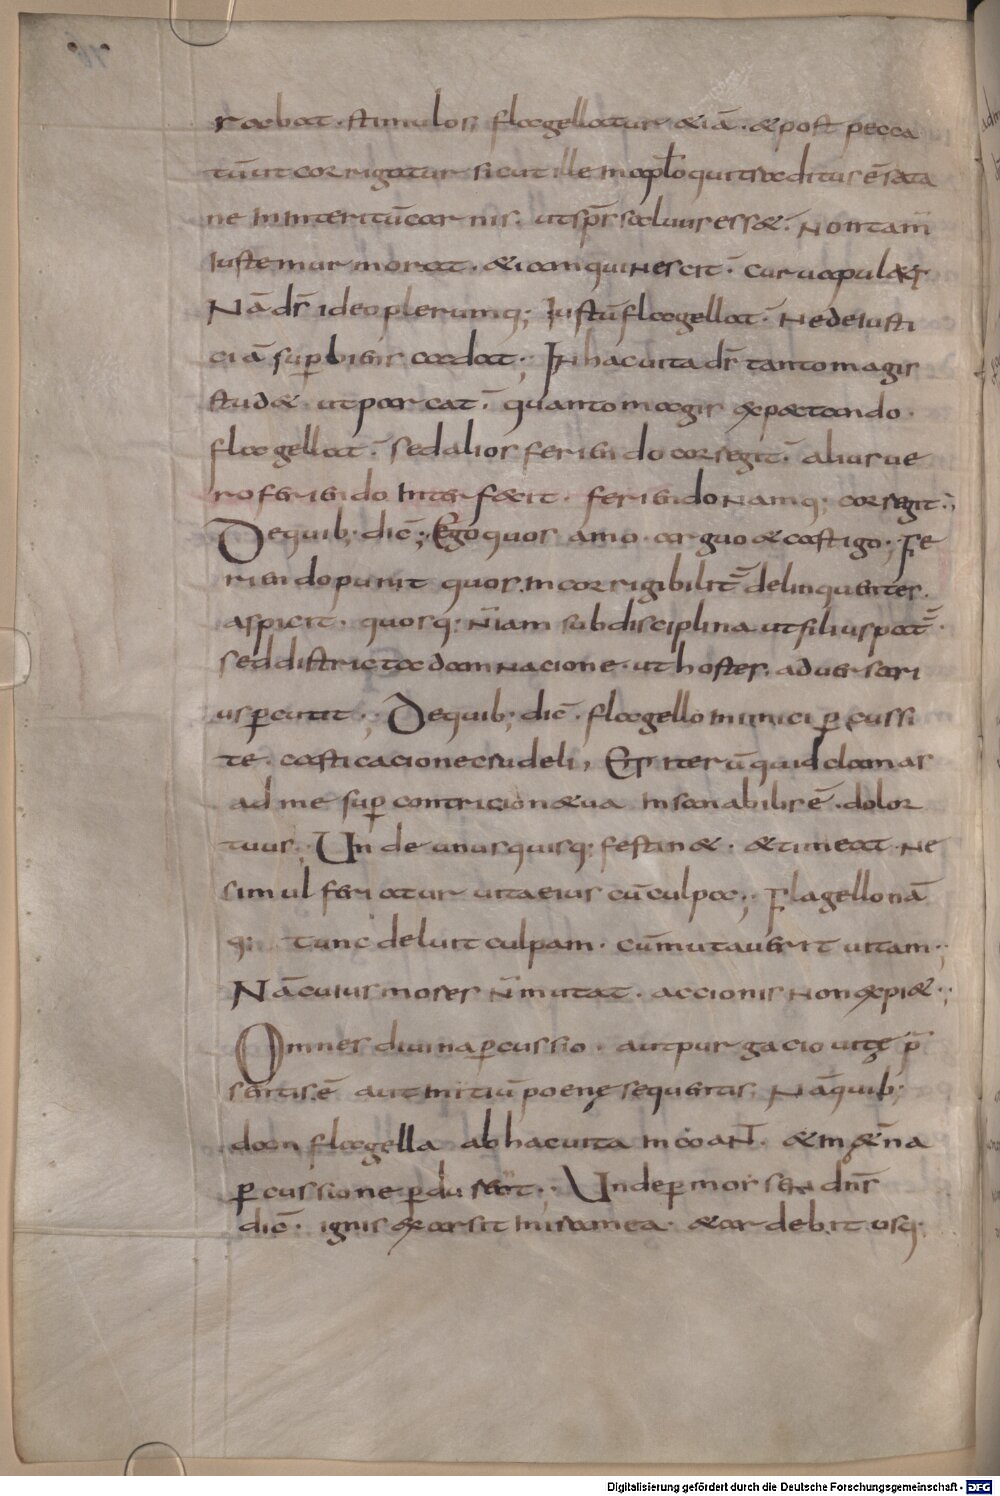 rabat · stimulos; flagellatur &iā · & post pecca
tū ut corrigatur sicut ille in aplo qui traditus ē sata
ne in interitū carnis · ut sps saluus ess& · Non tam
iuste murmorat · & iam qui nescit · cur uapul&ur
Nā ds ideo plerumq; iustū flagellat · Ne de iusti
ciā superbiens cadat; In hac uita ds tanto magis
stud& ut parcat · quanto magis expectando
flagellat · sed alios feriendo corregit · alios ue
ro feriendo interfecit · feriendo namq; corregit ·;
De quib; dic̄; Ego quos amo arguo & castigo; Fe
riendo punit quos incorrigibilit̄ delinquentes
aspicit · quosq; n̄ iam sub disciplina ut filius pat̄
sed districta damnacione ut hostes aduersari
us ꝑcutit ·; De quib; dic̄ · flagello inimici ꝑcussi
te · castigacione crudeli, Et iterū quid clamas
ad me sup contricion&ua insanabilis ē · dolor
tuus; Unde unusquisq; festin& · & timeat · Ne
simul feriatur uita eius cū culpa; Flagello nā
q; tunc deluit culpam · cū mutauerit uitam ·;
Nā cuius mores n̄ mutat · accionis non expi& ·;
Omnes diuina ꝑcussio · aut purgacio uitę p̄
sentis ē aut initiū poenę sequentis; Nā quib;
dam flagella ab hac uita incoaN̄ · & in &̄na
ꝑcussione ꝑdurant ·; Unde ꝑ morsen dn̄s
dic̄ · ignis exarsit in ira mea · & ardebit usq;
Digitalisierung gefördert durch die Deutsche Forschungsgemeinschaft - DFG